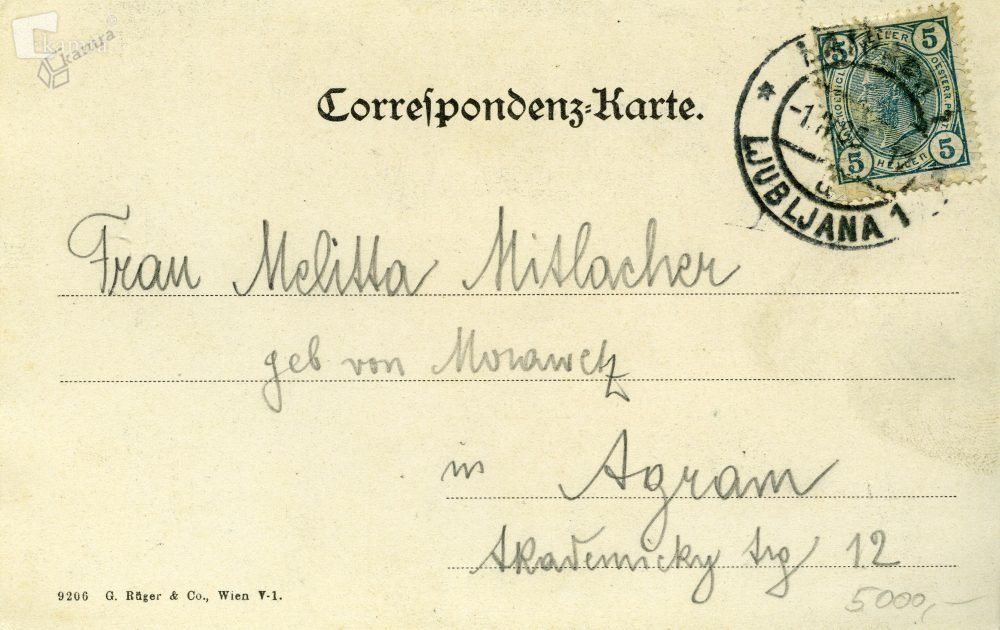 kamra
Correspondenz-Karte.
5 HELLER 5
5 HELLER 5
LJUBLJANA 1
Frau Melitta Mitlacher
geb von Morawetz
in Agram
Akademicky trg 12
5000,-
9206 G. Rüger & Co., Wien V-1.